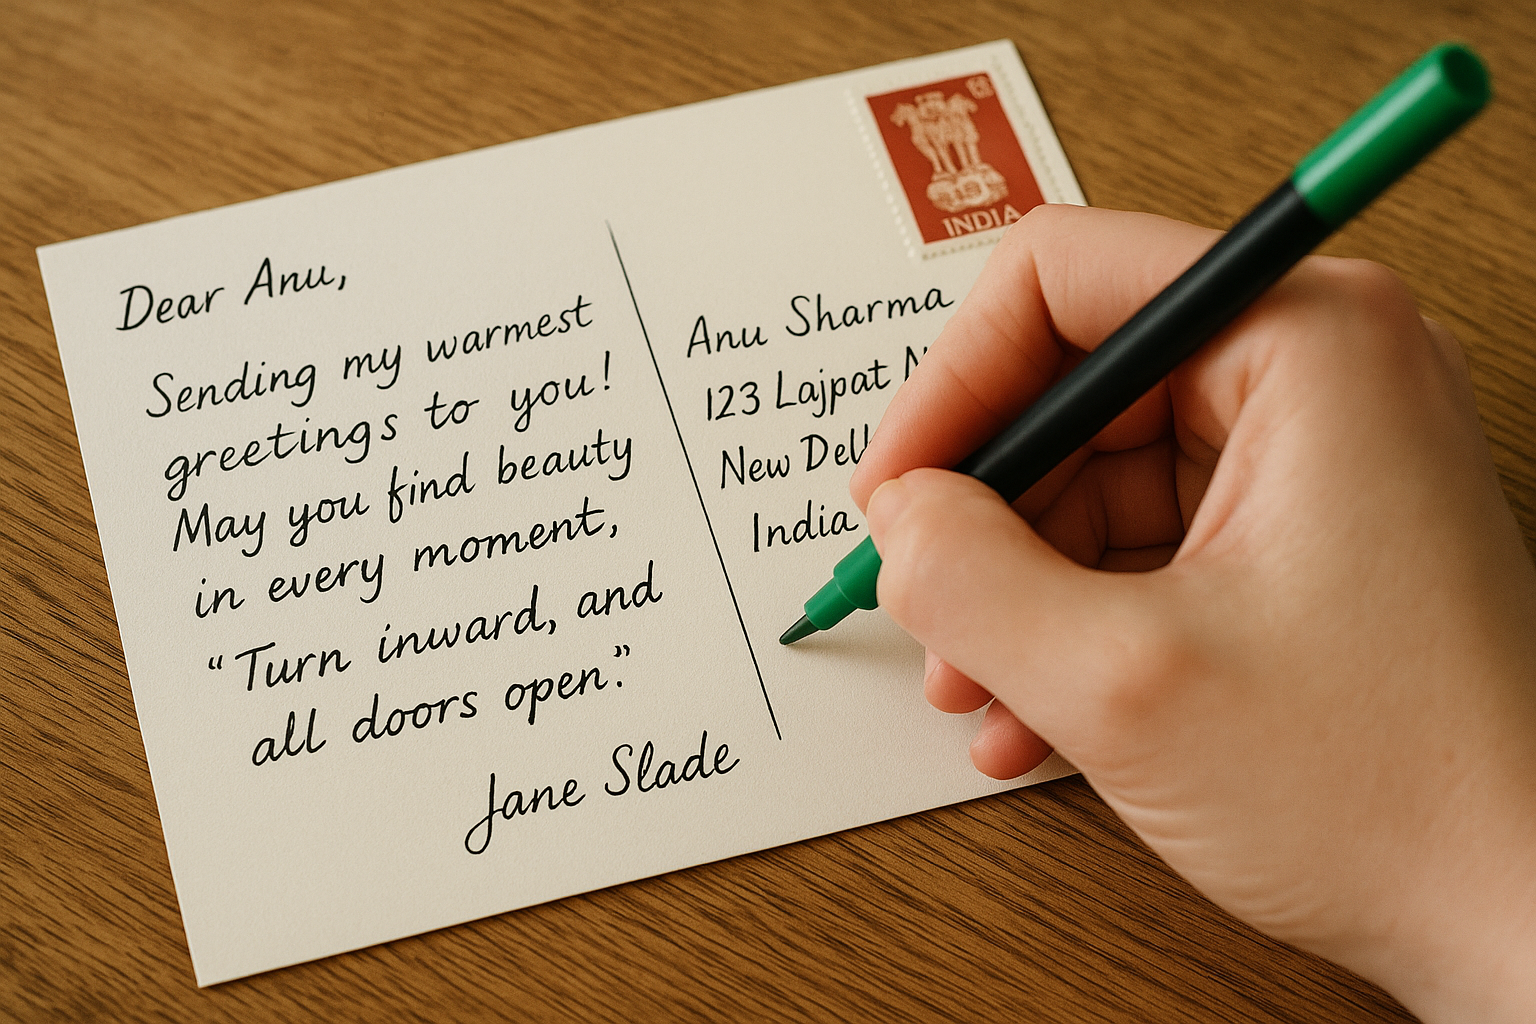 Dear Anu,
Sending my warmest
greetings to you!
May you find beauty
in every moment,
“Turn inward, and
all doors open.”
Jane Slade
INDIA
Anu Sharma
123 Lajpat
New
India